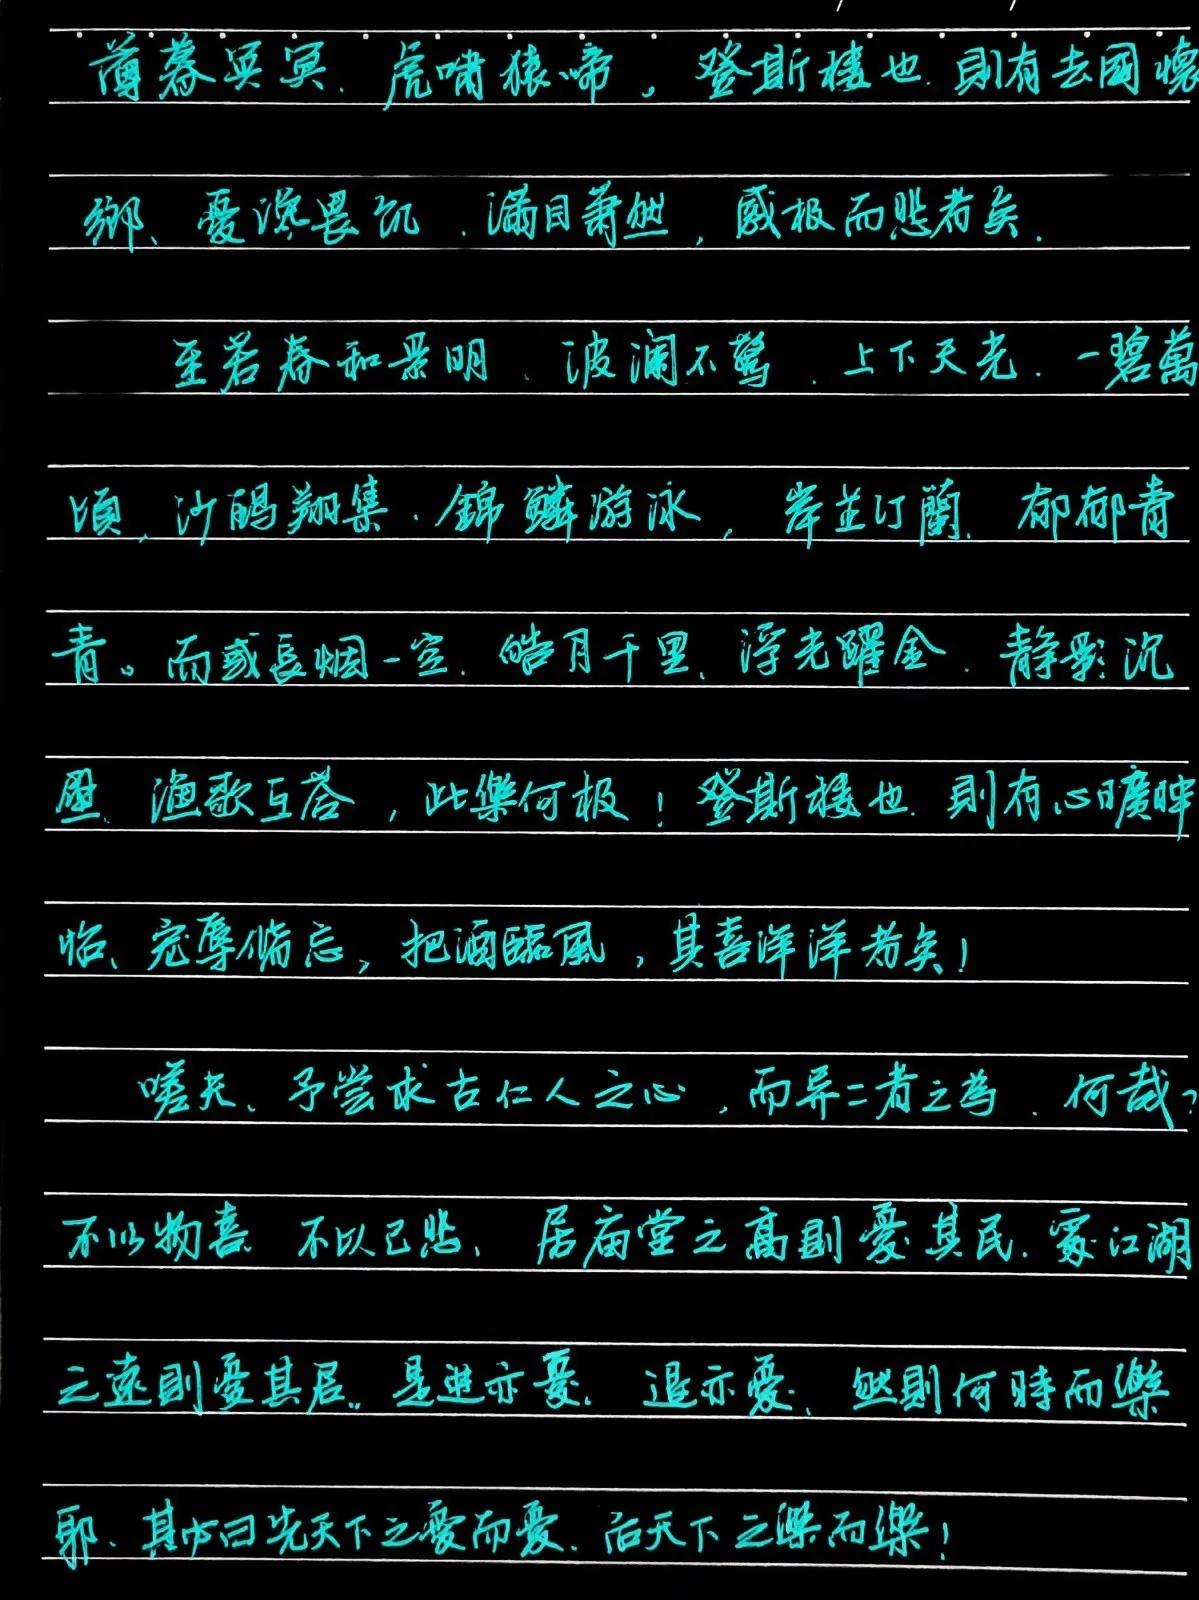 薄暮冥冥、虎啸猿啼。登斯樓也、則有去國懷
鄉、憂讒畏讥、满目萧然,感极而悲者矣.
至若春和景明、波澜不驚、上下天光、一碧萬
頃、沙鸥翔集、錦鱗游泳,岸芷汀蘭、郁郁青
青。而或長烟一空、皓月千里、浮光躍金、静影沉
璧、漁歌互答,此樂何极!登斯樓也、則有心曠神
怡、宠辱偕忘,把酒臨風,其喜洋洋者矣!
嗟夫、予尝求古仁人之心,而异二者之為、何哉?
不以物喜 不以己悲、居庙堂之高則憂其民、處江湖
之遠則憂其君。是進亦憂、退亦憂、然則何時而樂
耶、其必曰先天下之憂而憂、后天下之樂而樂!